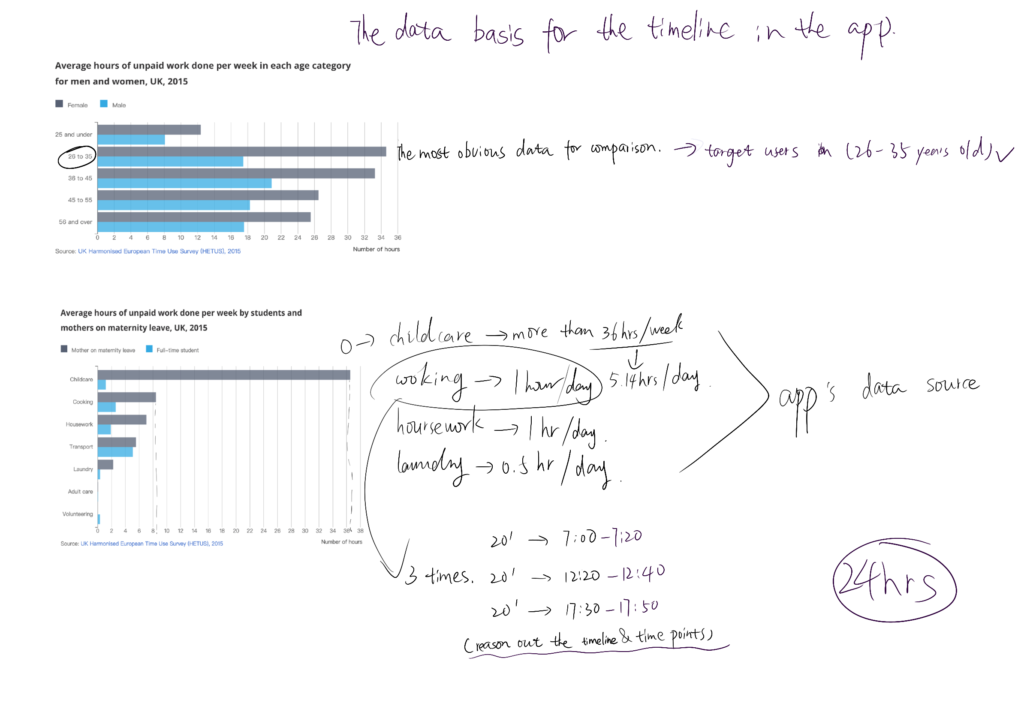 The data basis for the timeline in the app.
Average hours of unpaid work done per week in each age category
for men and women, UK, 2015
Female Male
25 and under
26 to 35
36 to 45
45 to 55
56 and over
0 2 4 6 8 10 12 14 16 18 20 22 24 26 28 30 32 34 36
Number of hours
Source: UK Harmonised European Time Use Survey (HETUS), 2015
The most obvious data for comparison. → target users in (26-35 years old) ✓
Average hours of unpaid work done per week by students and
mothers on maternity leave, UK, 2015
Mother on maternity leave Full-time student
Childcare
Cooking
Housework
Transport
Laundry
Adult care
Volunteering
0 2 4 6 8 10 12 14 16 18 20 22 24 26 28 30 32 34 36 38
Number of hours
Source: UK Harmonised European Time Use Survey (HETUS), 2015
0→ childcare → more than 36hrs/week
cooking → 1 hour/day 5.14hrs/day.
hoursework → 1 hr/day.
laundry → 0.5 hr/day.
app's data source
20' → 7:00-7:20
3 times. 20' → 12:20-12:40
20' → 17:30-17:50
(reason out the timeline & time points)
24hrs